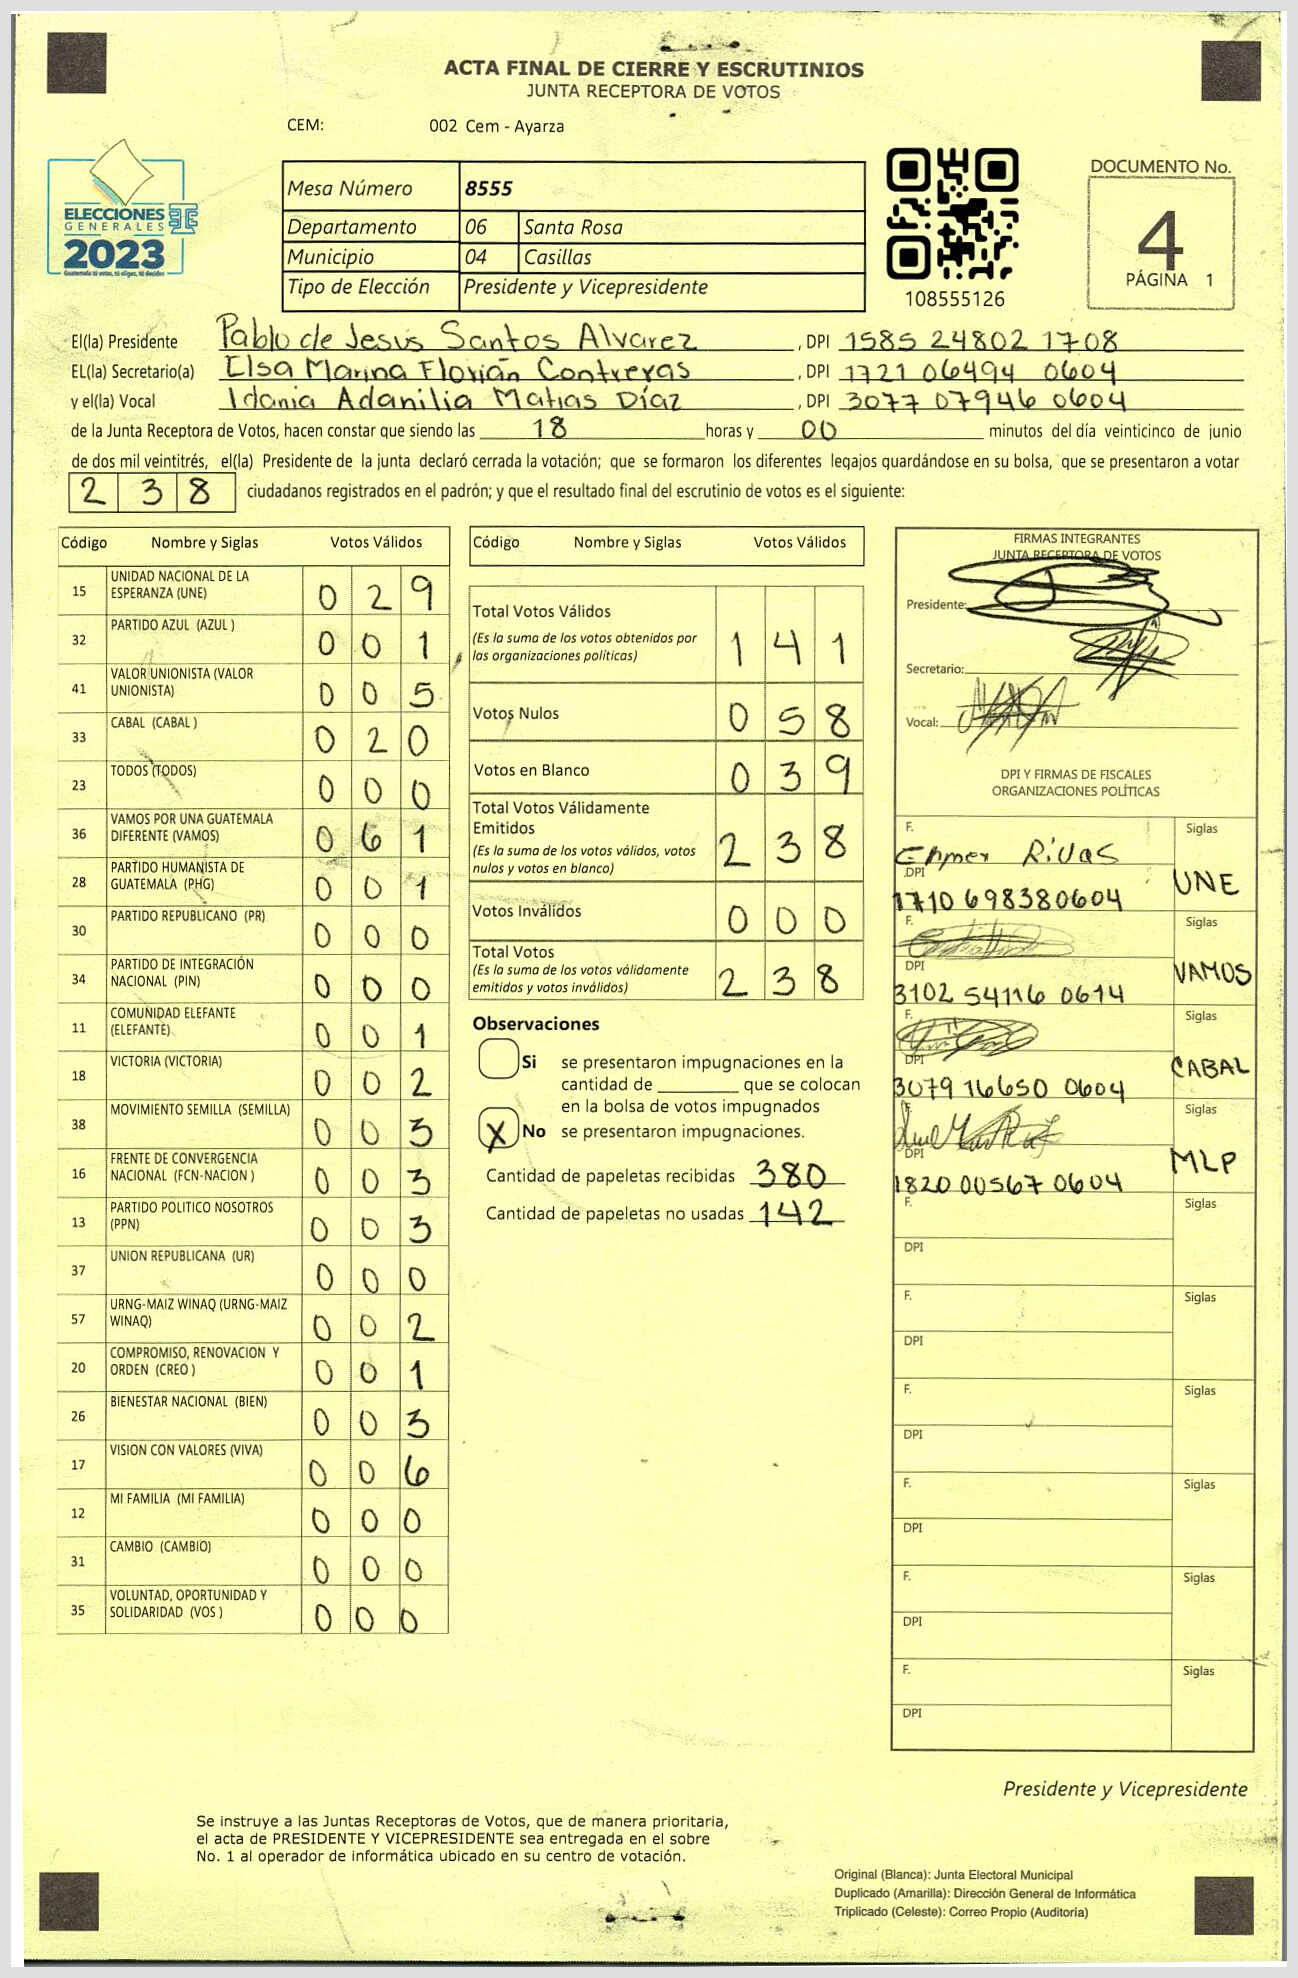 ACTA FINAL DE CIERRE Y ESCRUTINIOS
JUNTA RECEPTORA DE VOTOS
CEM: 002 Cem - Ayarza
ELECCIONES
GENERALES
2023
Guatemala tú votas, tú eliges, tú decides
Mesa Número 8555
Departamento 06 Santa Rosa
Municipio 04 Casillas
Tipo de Elección Presidente y Vicepresidente
108555126
DOCUMENTO No.
4
PÁGINA 1
El(la) Presidente Pablo de Jesús Santos Alvarez , DPI 1585 24802 1708
EL(la) Secretario(a) Elsa Marina Florián Contreras , DPI 1721 06494 0604
y el(la) Vocal Idania Adanilia Matias Díaz , DPI 3077 07946 0604
de la Junta Receptora de Votos, hacen constar que siendo las 18 horas y 00 minutos del día veinticinco de junio
de dos mil veintitrés, el(la) Presidente de la junta declaró cerrada la votación; que se formaron los diferentes legajos guardándose en su bolsa, que se presentaron a votar
238 ciudadanos registrados en el padrón; y que el resultado final del escrutinio de votos es el siguiente:
Código Nombre y Siglas Votos Válidos
15 UNIDAD NACIONAL DE LA ESPERANZA (UNE) 0 2 9
32 PARTIDO AZUL (AZUL ) 0 0 1
41 VALOR UNIONISTA (VALOR UNIONISTA) 0 0 5
33 CABAL (CABAL ) 0 2 0
23 TODOS (TODOS) 0 0 0
36 VAMOS POR UNA GUATEMALA DIFERENTE (VAMOS) 0 6 1
28 PARTIDO HUMANISTA DE GUATEMALA (PHG) 0 0 1
30 PARTIDO REPUBLICANO (PR) 0 0 0
34 PARTIDO DE INTEGRACIÓN NACIONAL (PIN) 0 0 0
11 COMUNIDAD ELEFANTE (ELEFANTE) 0 0 1
18 VICTORIA (VICTORIA) 0 0 2
38 MOVIMIENTO SEMILLA (SEMILLA) 0 0 3
16 FRENTE DE CONVERGENCIA NACIONAL (FCN-NACION ) 0 0 3
13 PARTIDO POLITICO NOSOTROS (PPN) 0 0 3
37 UNION REPUBLICANA (UR) 0 0 0
57 URNG-MAIZ WINAQ (URNG-MAIZ WINAQ) 0 0 2
20 COMPROMISO, RENOVACION Y ORDEN (CREO ) 0 0 1
26 BIENESTAR NACIONAL (BIEN) 0 0 3
17 VISION CON VALORES (VIVA) 0 0 6
12 MI FAMILIA (MI FAMILIA) 0 0 0
31 CAMBIO (CAMBIO) 0 0 0
35 VOLUNTAD, OPORTUNIDAD Y SOLIDARIDAD (VOS ) 0 0 0
Código Nombre y Siglas Votos Válidos
Total Votos Válidos 1 4 1
(Es la suma de los votos obtenidos por
las organizaciones políticas)
Votos Nulos 0 5 8
Votos en Blanco 0 3 9
Total Votos Válidamente
Emitidos 2 3 8
(Es la suma de los votos válidos, votos
nulos y votos en blanco)
Votos Inválidos 0 0 0
Total Votos 2 3 8
(Es la suma de los votos válidamente
emitidos y votos inválidos)
Observaciones
Si se presentaron impugnaciones en la
cantidad de ________ que se colocan
en la bolsa de votos impugnados
X No se presentaron impugnaciones.
Cantidad de papeletas recibidas 380
Cantidad de papeletas no usadas 142
FIRMAS INTEGRANTES
JUNTA RECEPTORA DE VOTOS
Presidente:
Secretario:
Vocal:
DPI Y FIRMAS DE FISCALES
ORGANIZACIONES POLÍTICAS
F. Siglas
Rivas
DPI UNE
1710 69838 0604
F. Siglas
DPI VAMOS
3102 54116 0614
F. Siglas
DPI CABAL
3079 16650 0604
F. Siglas
DPI MLP
1820 00567 0604
F. Siglas
DPI
F. Siglas
DPI
F. Siglas
DPI
F. Siglas
DPI
F. Siglas
DPI
F. Siglas
DPI
Presidente y Vicepresidente
Se instruye a las Juntas Receptoras de Votos, que de manera prioritaria,
el acta de PRESIDENTE Y VICEPRESIDENTE sea entregada en el sobre
No. 1 al operador de informática ubicado en su centro de votación.
Original (Blanca): Junta Electoral Municipal
Duplicado (Amarilla): Dirección General de Informática
Triplicado (Celeste): Correo Propio (Auditoria)